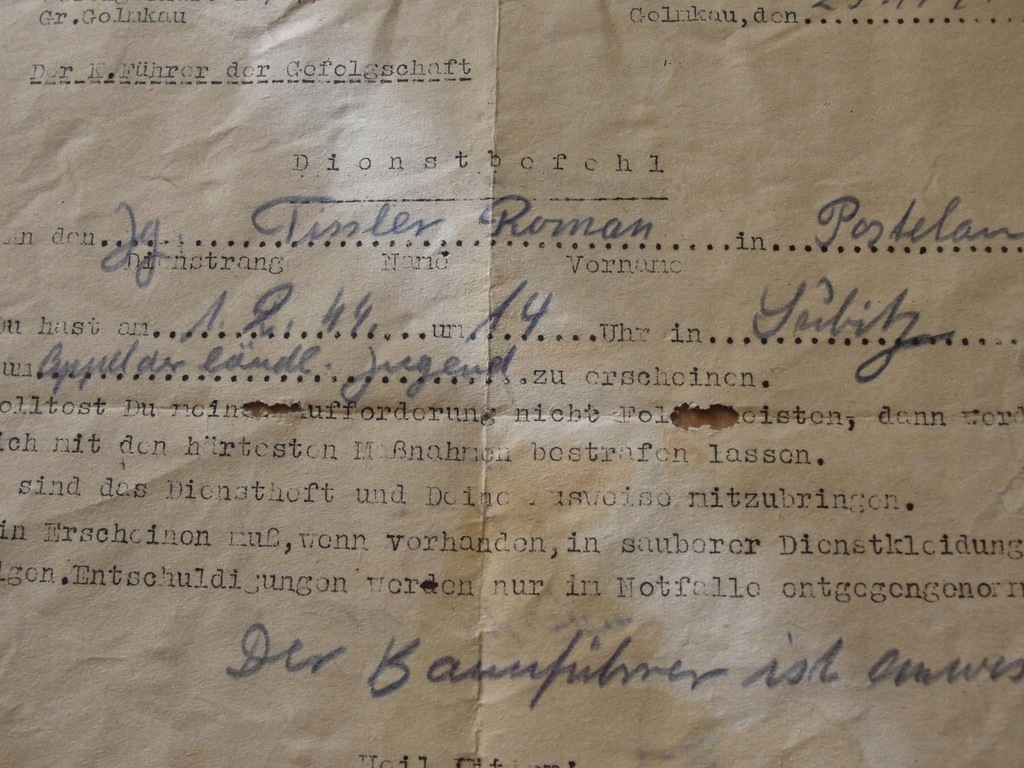 Gr.Golmkau
Golmkau,den
Der K.Führer der Gefolgschaft
Dienstbefehl
An den Jg. Tissler Roman in Postelau
Dienstrang Name Vorname
Du hast am 1. 2. 44. um 14 Uhr in Sübitz
um Appel der ländl. Jugend zu erscheinen.
olltest Du mein ufforderung nicht Fol eisten, dann werd
ich mit den härtesten Maßnahmen bestrafen lassen.
sind das Dienstheft und Deine Ausweise mitzubringen.
in Erscheinen muß,wenn vorhanden,in sauberer Dienstkleidung
lgen.Entschuldigungen werden nur im Notfalle entgegengenomm
Der Bannführer ist anwes
Heil Hitler!